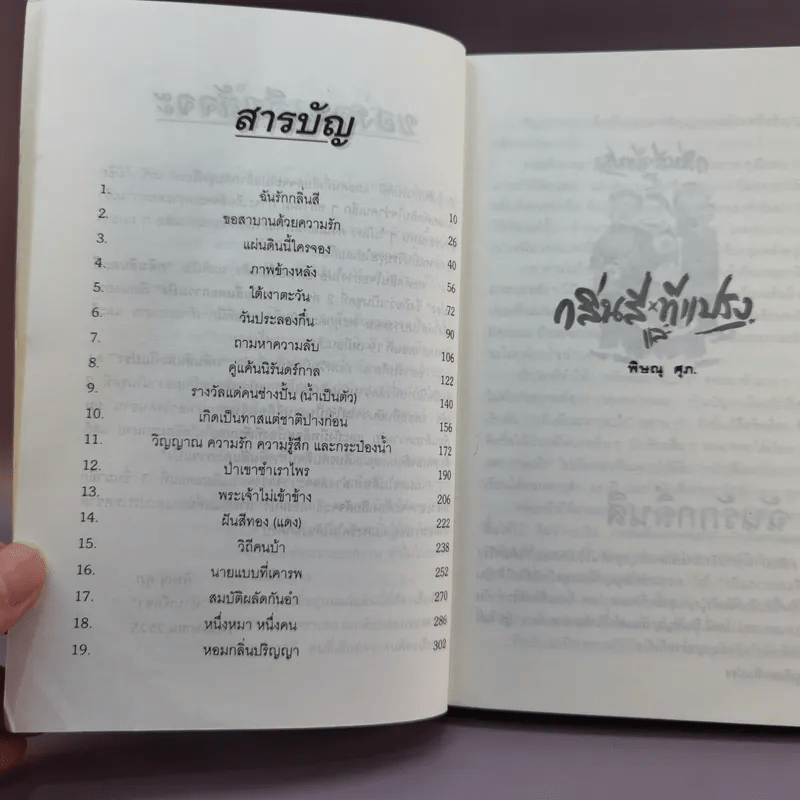 สารบัญ
1. ฉันรักกลิ่นสี 10
2. ขอสาบานด้วยความรัก 26
3. แผ่นดินนี้ใครจอง 40
4. ภาพข้างหลัง 56
5. ใต้เงาตะวัน 72
6. วันประลองกึ๋น 90
7. ถามหาความลับ 106
8. คู่แค้นนิรันดร์กาล 122
9. รางวัลแด่คนช่างปั้น (น้ำเป็นตัว) 140
10. เกิดเป็นทาสแต่ชาติปางก่อน 156
11. วิญญาณ ความรัก ความรู้สึก และกระป๋องน้ำ 172
12. ป่าเขาซำเราไพร 190
13. พระเจ้าไม่เข้าข้าง 206
14. ฝันสีทอง (แดง) 222
15. วิถีคนบ้า 238
16. นายแบบที่เคารพ 252
17. สมบัติผลัดกันอำ 270
18. หนึ่งหมา หนึ่งคน 286
19. หอมกลิ่นปริญญา 302
กลิ่นสีและทีแปรง
พิษณุ ศุภ.